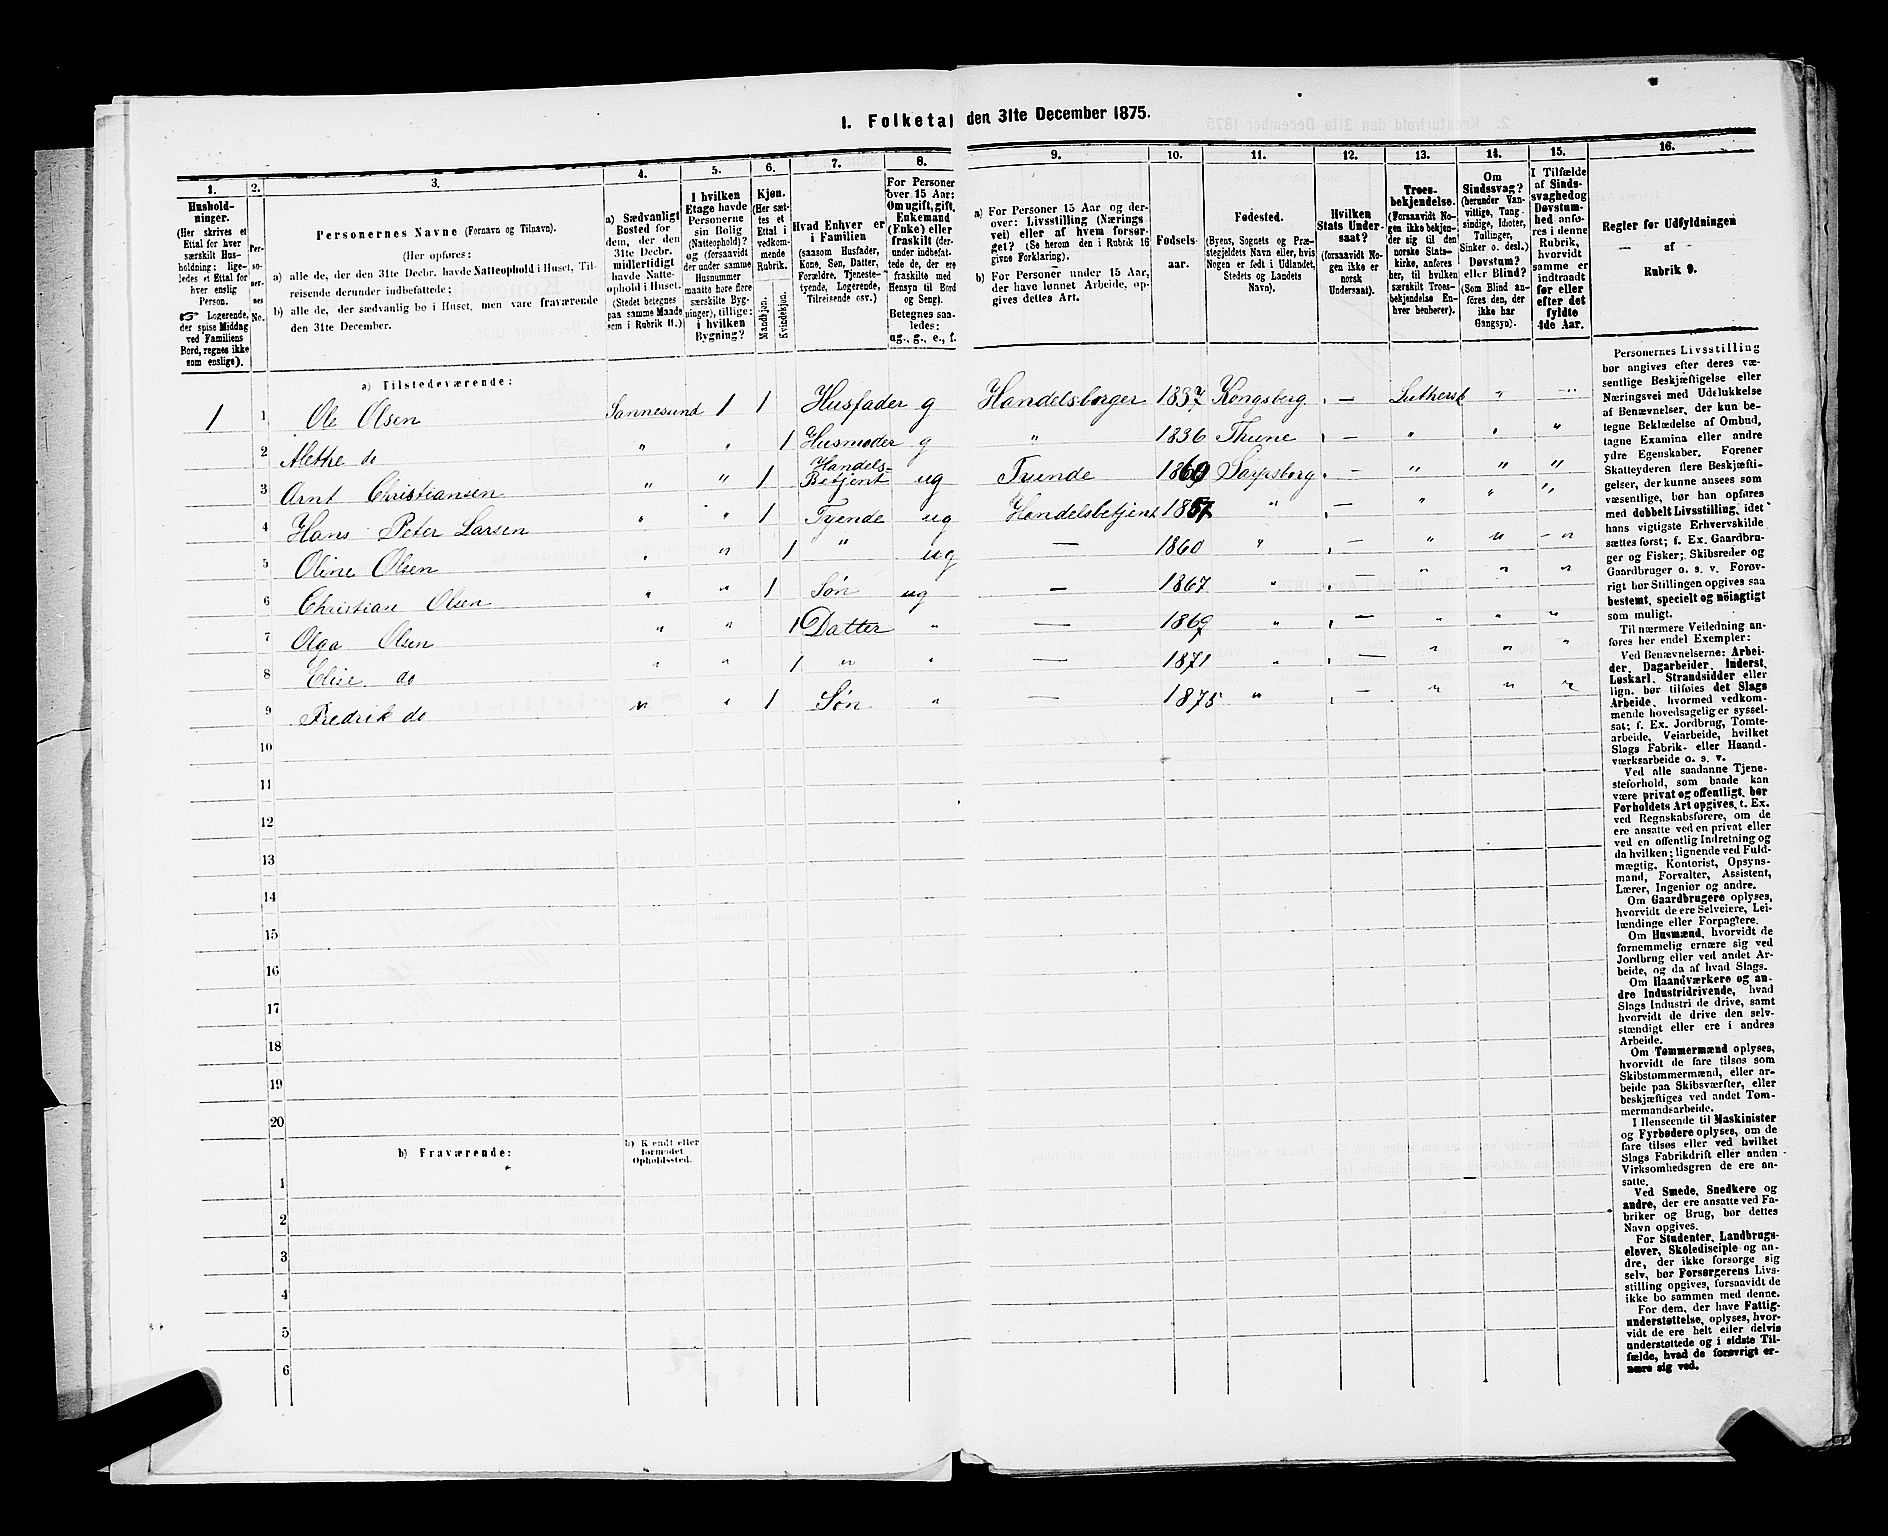 1. Folketal den 31te December 1875.
1. 2. 3. 4. 5. 6. 7. 8. 9. 10. 11. 12. 13. 14. 15. 16.
Hushold-
ninger.
(Her skrives et
Ettal for hver
særskilt Hus-
holdning; lige-
ledes et Ettal for
hver enslig
Person.
☞ Logerende,
der spise Middag
ved Familiens
Bord, regnes ikke
som enslige).
Per-
so-
ner-
nes
No.
Personernes Navne (Fornavn og Tilnavn).
(Her opføres:
a) alle de, der den 31te Decbr. havde Natteophold i Huset, Til-
reisende derunder indbefattede;
b) alle de, der sædvanlig bo i Huset, men vare fraværende
den 31te December.
a) Sædvanligt
Bosted for
dem, der den
31te Decbr.
midlertidigt
havde Natte-
ophold i Huset.
(Stedet betegnes
paa samme Maade
som i Rubrik 11.)
I hvilken
Etage havde
Personerne
sin Bolig
(Natteophold)?
og (forsaavidt
der under samme
Husnummer
maatte høre flere
særskilte Byg-
ninger), tillige:
i hvilken
Bygning?
Kjøn.
(Her sæt-
tes et
Ettal i
vedkom-
mende
Rubrik.
Mandkjøn.
Kvindekjøn.
Hvad Enhver er
i Familien
(saasom Husfader,
Kone, Søn, Datter,
Forældre, Tjeneste-
tyende, Logerende,
Tilreisende osv.)
For Personer
over 15 Aar:
Om ugift, gift,
Enkemand
(Enke) eller
fraskilt (der-
under indbefat-
tede de, der ere
fraskilte med
Hensyn til Bord
og Seng).
Betegnes saa-
ledes:
ug., g., e., f.
a) For Personer 15 Aar og der-
over: Livsstilling (Nærings
vei) eller af hvem forsør-
get? (Se herom den i Rubrik 16
givne Forklaring).
b) For Personer under 15 Aar,
der have lønnet Arbeide, op-
gives dettes Art.
Fødsels-
aar.
Fødested.
(Byens, Sognets og Præ-
stegjeldets Navn eller, hvis
Nogen er født i Udlandet,
Stedets og Landets
Navn).
Hvilken
Stats Under-
saat?
(forsaavidt No-
gen ikke er
norsk
Undersaat).
Troes-
bekjendelse.
(Forsaavidt No-
gen ikke bekjen-
der sig til den
norske Stats-
kirke, anføres
her, til hvilken
særskilt Troes-
bekjendelse En-
hver henhører).
Om
Sindssvag?
(herunder Van-
vittige, Tung-
sindige, Idioter,
Tullinger,
Sinker o. desl.)
Døvstum?
eller Blind?
(Som Blind an-
føres den, der
ikke har
Gangsyn).
I Tilfælde
af Sinds-
svaghed og
Døvstum-
hed anfø-
res i denne
Rubrik,
hvorvidt
samme er
indtraadt
før eller
efter det
fyldte
4de Aar.
Regler for Udfyldningen
af
Rubrik 9.
a) Tilstedeværende:
1 1 Ole Olsen Sannesund 1 1 Husfader g Handelsborger 1837 Kongsberg — Luthersk " — "
2 Alethe do " " 1 Husmoder g " 1836 Thune — " " "
3 Arnt Christiansen " " 1 Handels-Betjent ug Tyende 1860 Sarpsborg — " " "
4 Hans Peter Larsen " " 1 Tyende ug Handelsbetjent 1857 " — " " "
5 Oline Olsen " " 1 " ug — 1860 " — " " "
6 Christian Olsen " " 1 Søn ug — 1867 " — " " "
7 Olga Olsen " " 1 Datter " — 1869 " — " " "
8 Elise do " " 1 " " — 1871 " — " " "
9 Fredrik do " " 1 Søn " — 1875 " — " " "
10
11
12
13
14
15
16
17
18
19
20
b) Fraværende:
b) Kjendt eller
formodet
Opholdssted.
1
2
3
4
5
6
Personernes Livsstilling
bør angives efter deres væ-
sentlige Beskjæftigelse eller
Næringsvei med Udelukkelse
af Benævnelser, der kun be-
tegne Beklædelse af Ombud,
tagne Examina eller andre
ydre Egenskaber. Forener
Skatteyderen flere Beskjæfti-
gelser, der kunne ansees som
væsentlige, bør han opføres
med dobbelt Livsstilling, idet
hans vigtigste Erhvervskilde
sættes først; f. Ex. Gaardbru-
ger og Fisker; Skibsreder og
Gaardbruger o. s. v. Forøv-
rigt bør Stillingen opgives saa
bestemt, specielt og nöiagtigt
som muligt.
Til nærmere Veiledning an-
føres her endel Exempler:
Ved Benævnelserne: Arbei-
der, Dagarbeider, Inderst,
Løskarl, Strandsidder eller
lign. bør tilføies det Slags
Arbeide, hvormed vedkom-
mende hovedsagelig er syssel-
sat; f. Ex. Jordbrug, Tomte-
arbeide, Veiarbeide, hvilket
Slags Fabrik- eller Haand-
værksarbeide o. s. v.
Ved alle saadanne Tjene-
steforhold, som baade kan
være privat og offentligt, bør
Forholdets Art opgives, t. Ex.
ved Regnskabsførere, om de
ere ansatte ved en privat eller
ved en offentlig Indretning og
da hvilken; lignende ved Fuld-
mægtig, Kontorist, Opsyns-
mand, Forvalter, Assistent,
Lærer, Ingeniør og andre.
Om Gaardbrugere oplyses,
hvorvidt de ere Selveiere, Lei-
lændinge eller Forpagtere.
Om Husmænd, hvorvidt de
fornemmelig ernære sig ved
Jordbrug eller ved andet Ar-
beide, og da af hvad Slags.
Om Haandværkere og an-
dre Industridrivende, hvad
Slags Industri de drive, samt
hvorvidt de drive den selv-
stændigt eller ere i andres
Arbeide.
Om Tømmermænd oplyses,
hvorvidt de fare tilsøs som
Skibstømmermænd, eller ar-
beide paa Skibsværfter, eller
beskjæftiges ved andet Tøm-
mermandsarbeide.
I Henseende til Maskinister
og Fyrbødere oplyses, om de
fare tilsøs eller ved hvilket
Slags Fabrikdrift eller anden
Virksomhedsgren de ere an-
satte.
Ved Smede, Snedkere og
andre, der ere ansatte ved Fa-
briker og Brug, bør dettes
Navn opgives.
For Studenter, Landbrugs-
elever, Skoledisciple og an-
dre, der ikke forsørge sig
selv, bør Forsørgerens Livs-
stilling opgives, forsaavidt de
ikke bo sammen med denne.
For dem, der have Fattig-
understøttelse, oplyses, hvor-
vidt de ere helt eller delvis
understøttede og i sidste Til-
fælde, hvad de forøvrigt er-
nære sig ved.